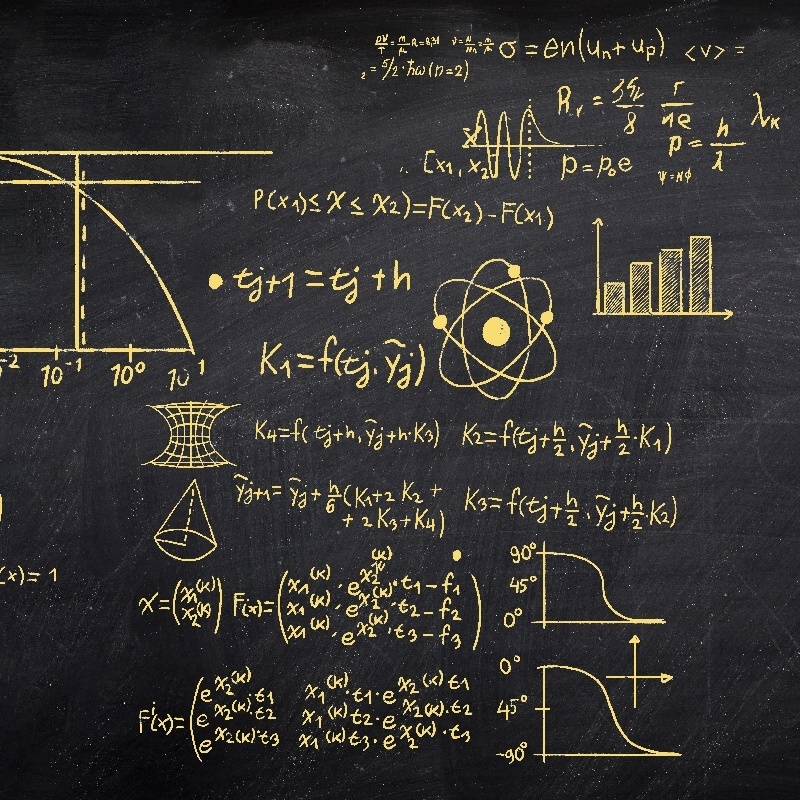 σ = en(uₙ + uₚ) <v> =
₂ = 5/2·ħω(n=2)
Rᵥ =
r/ne
p = h/λ
λₖ
[x₁, x₂]
p = p₀e
ψ = Nϕ
P(x₁) ≤ X ≤ x₂) = F(x₂) - F(x₁)
• tj+1 = tj + h
K₁ = f(tj, ỹj)
10⁻¹ 10⁰ 10¹
K₄ = f( tj+h, ỹj+h·K₃) K₂ = f(tj + h/2, ỹj + h/2·K₁)
ỹj+1 = ỹj + h/6 (K₁ + 2 K₂ +
+ 2 K₃ + K₄)
K₃ = f(tj + h/2, ỹj + h/2·K₂)
(x) = 1
X = (x₁⁽ᵏ⁾
x₂⁽ᵏ⁾)
F(x) = (x₁⁽ᵏ⁾·e^x₂⁽ᵏ⁾·t₁ - f₁
x₁⁽ᵏ⁾·e^x₂⁽ᵏ⁾·t₂ - f₂
x₁⁽ᵏ⁾·e^x₂⁽ᵏ⁾·t₃ - f₃)
90°
45°
0°
F'(x) = (e^x₂⁽ᵏ⁾·t₁ x₁⁽ᵏ⁾·t₁·e^x₂⁽ᵏ⁾t₁
e^x₂⁽ᵏ⁾·t₂ x₁⁽ᵏ⁾t₂·e^x₂⁽ᵏ⁾·t₂
e^x₂⁽ᵏ⁾·t₃ x₁⁽ᵏ⁾t₃·e^x₂⁽ᵏ⁾·t₃
0°
45°
-90°